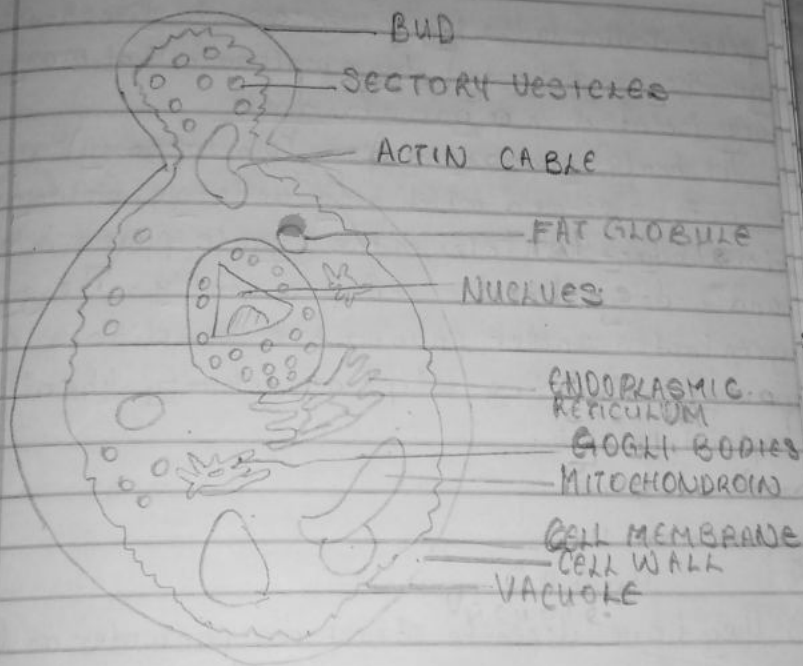 BUD
SECTORY VESICLES
ACTIN CABLE
FAT GLOBULE
NUCLUES
ENDOPLASMIC
RETICULUM
GOGLI BODIES
MITOCHONDROIN
CELL MEMBRANE
CELL WALL
VACUOLE